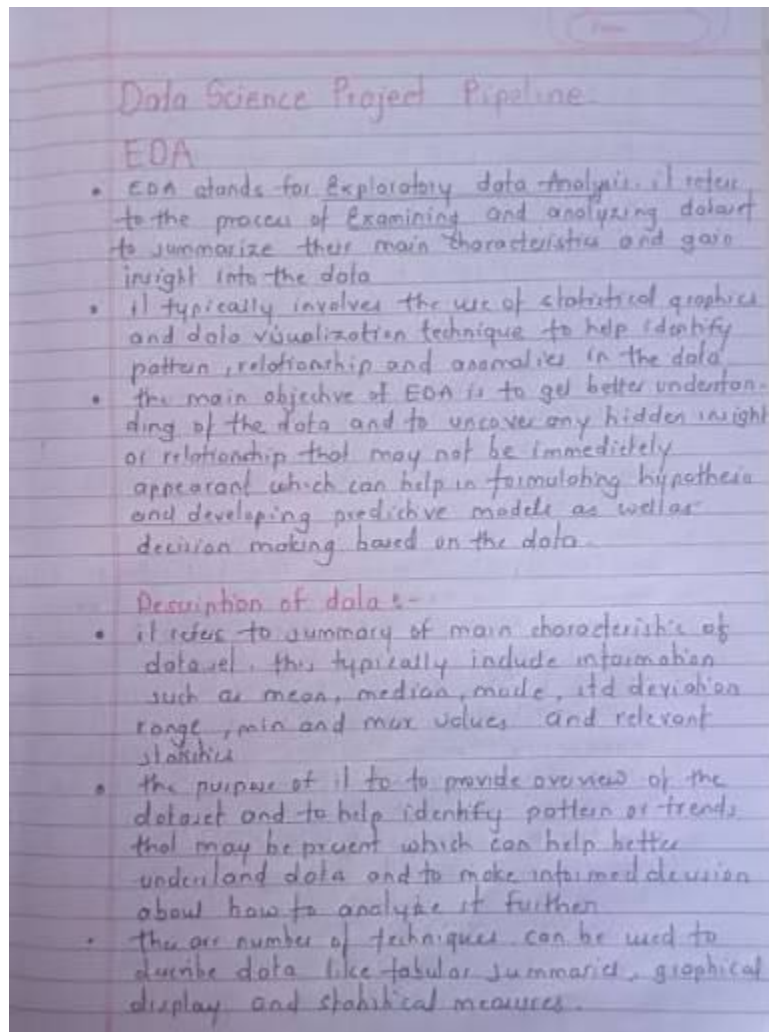 Data Science Project Pipeline
EDA
• EDA stands for Exploratory data Analysis. it refers
to the process of Examining and analyzing dataset
to summarize their main characteristics and gain
insight into the data
• it typically involves the use of statistical graphics
and data visualization technique to help identify
pattern, relationship and anomalies in the data
• the main objective of EDA is to get better understan-
ding of the data and to uncover any hidden insight
or relationship that may not be immedietely
appearant which can help in formulating hypothesis
and developing predictive models as well as
decision making based on the data.
Description of data :-
• it refers to summary of main characteristic of
dataset. this typically include information
such as mean, median, mode, std deviation
range, min and max values and relevant
statistics
• the purpose of it to to provide overview of the
dataset and to help identify pattern or trends
that may be present which can help better
understand data and to make informed decision
about how to analyze it further
• ther are number of techniques can be used to
describe data like tabular summaries, graphical
display and statistical measures.